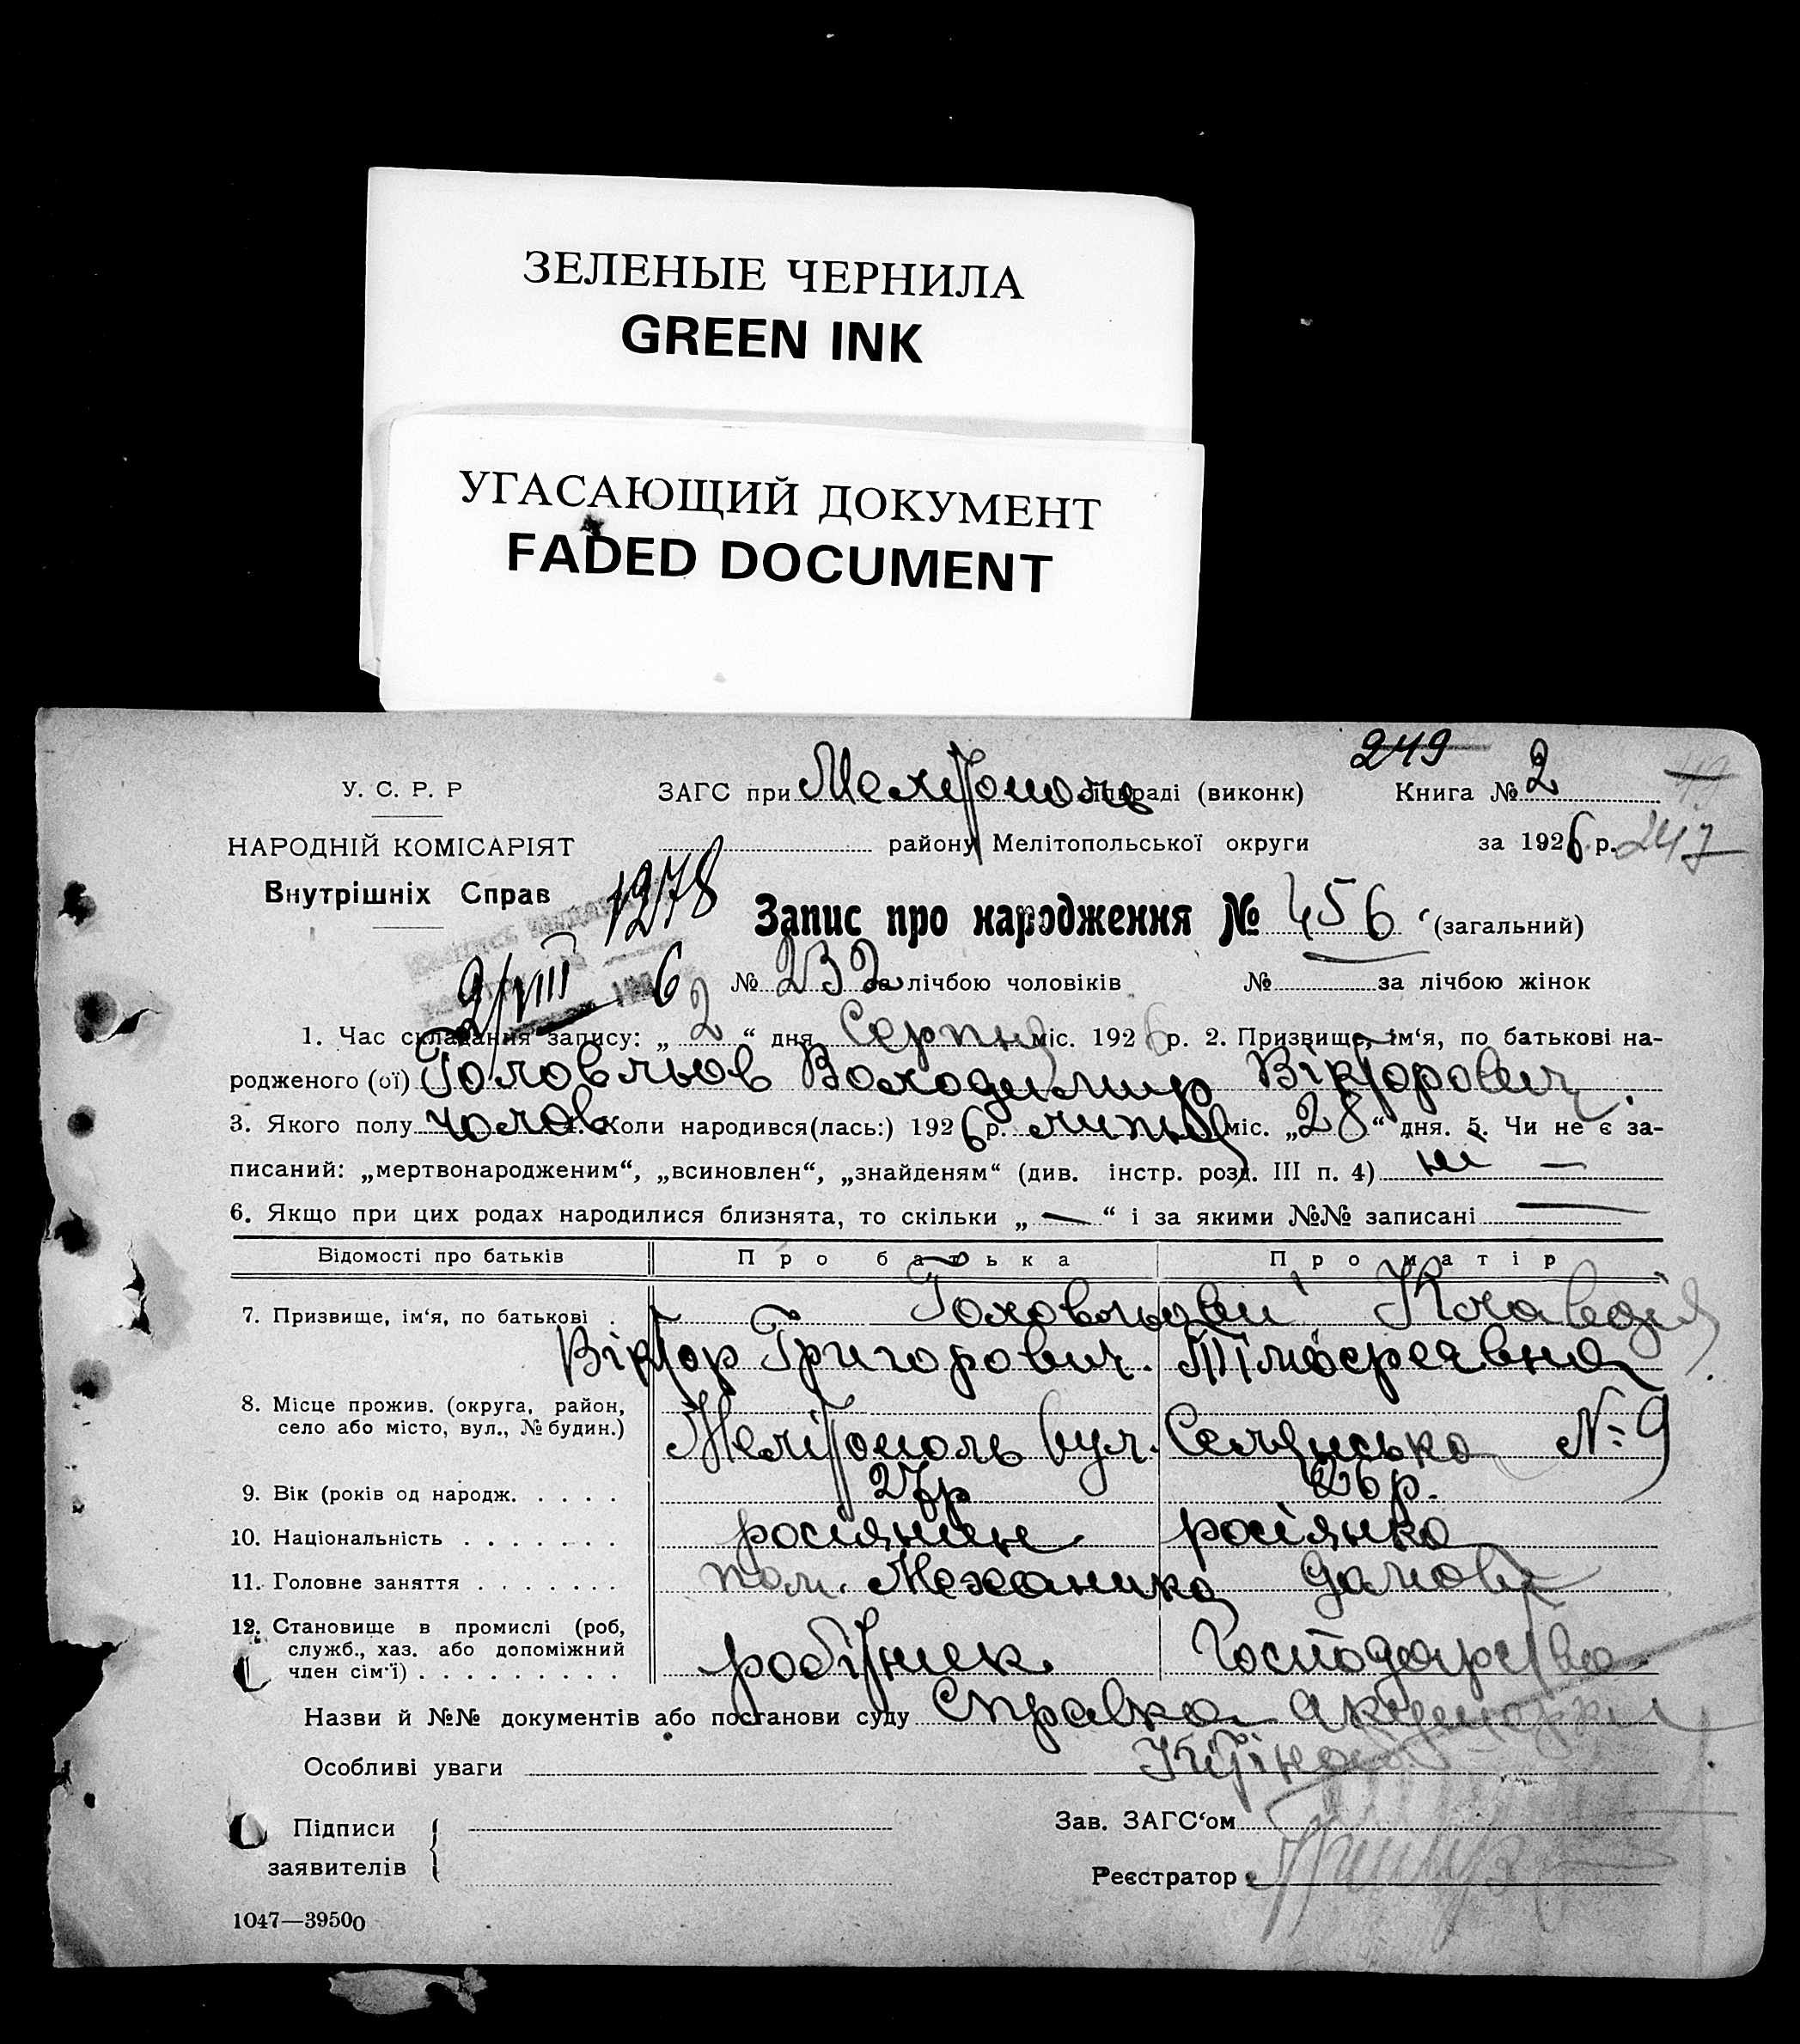 ЗЕЛЕНЫЕ ЧЕРНИЛА
GREEN INK
УГАСАЮЩИЙ ДОКУМЕНТ
FADED DOCUMENT
249
У. С. Р. Р
ЗАГС при Мелітополь раді (виконк) Книга № 2
НАРОДНІЙ КОМІСАРІЯТ
району Мелітопольської округи за 1926 р. 247
Внутрішніх Справ
1278
Запис про народження № 456 (загальний)
2/VIII 6
№ 232 за лічбою чоловіків № за лічбою жінок
1. Час складання запису: „ 2 “ дня Серпня міс. 1926 р. 2. Призвище, ім‘я, по батькові на-
родженого (ої) Головльов Володимир Вікторович.
3. Якого полу чолов 4. Коли народився(лась:) 1926 р. липня міс. „28“ дня. 5. Чи не є за-
писаний: „мертвонародженим“, „всиновлен“, „знайденям“ (див. інстр. розд. III п. 4) ні —
6. Якщо при цих родах народилися близнята, то скільки „ — “ і за якими №№ записані —
Відомості про батьків Про батька Про матір
7. Призвище, ім‘я, по батькові . Головльови Клавдія
Віктор Григорович. Тімофреявна
8. Місце прожив. (округа, район,
село або місто, вул., № будин.) Мелітополь вул. Селянська № 9
9. Вік (років од народж. . . . . 27р 26р.
10. Національність . . . . . . . росіянин росіянка
11. Головне заняття . . . . . . . пом. Механика домове
12. Становище в промислі (роб,
служб., хаз. або допоміжний
член сім‘ї) . . . . . . . . . робітник Господарство
Назви й №№ документів або постанови суду Справка Акушорки
Особливі уваги
Підписи
заявителів
Зав. ЗАГС‘ом
Реєстратор
1047—39500